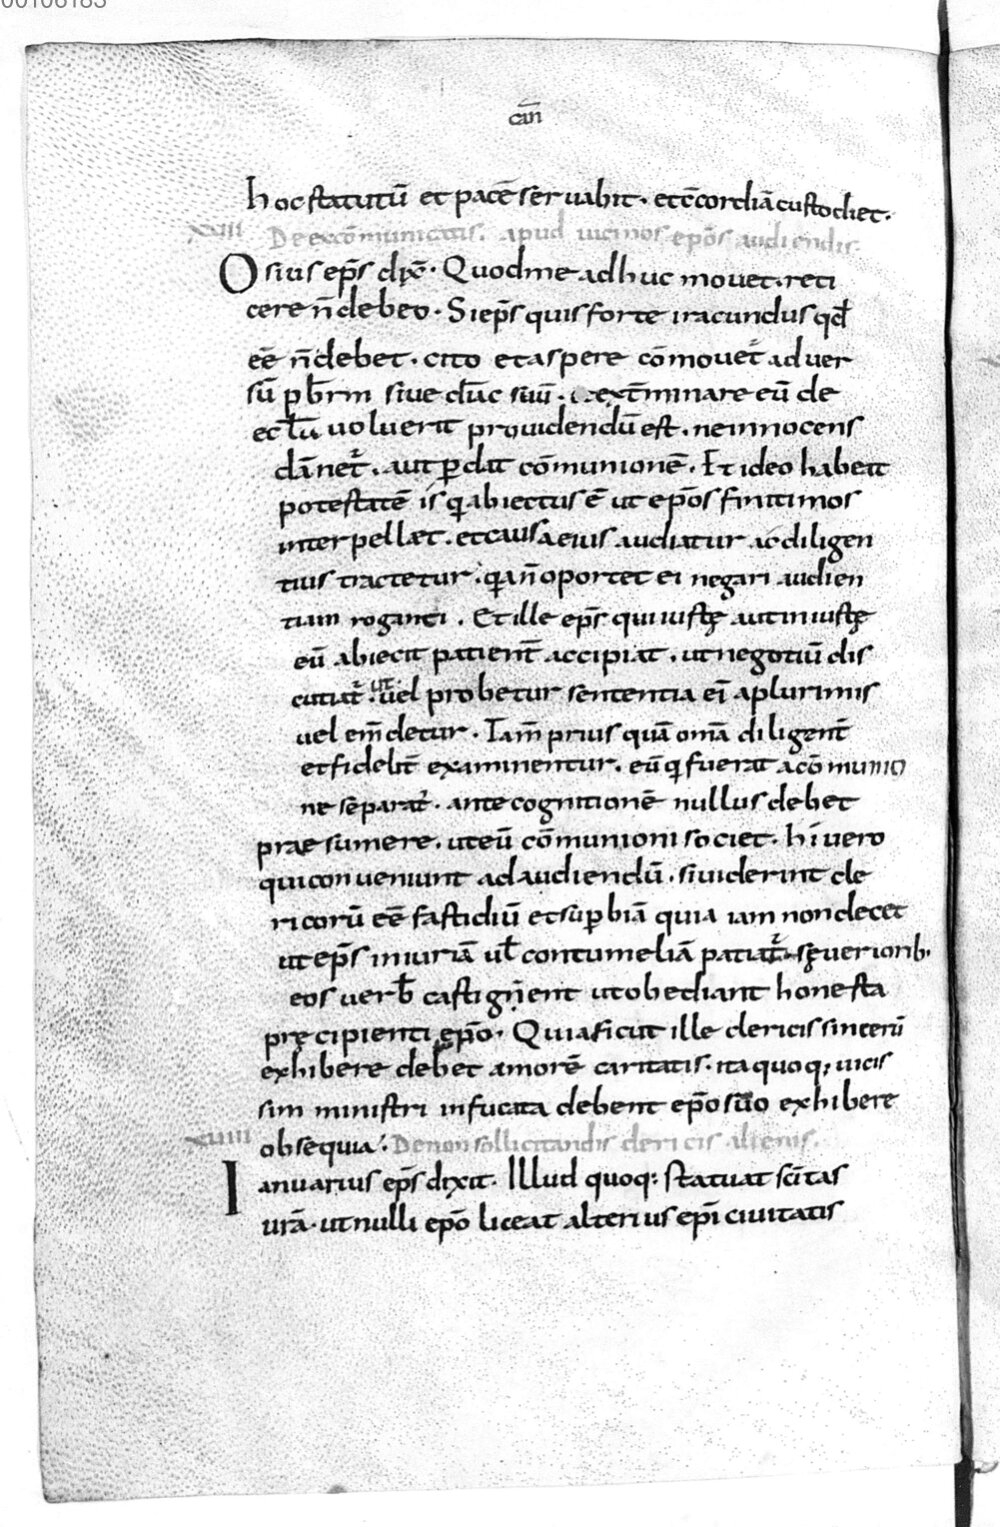 00106183
can̄
hoc statutū et pacē seruabit. et c̄cordiā custodiet.
XXIII De excōmunicatis. apud uicinos ep̄os audiendis.
Osius ep̄s dix̄. Quod me adhuc mouet. reti
cere n̄ debeo. Si ep̄s quis forte iracundus qd̄
eē n̄ debet. cito et aspere cōmouet᷒ aduer
sū pb̄rm siue diāc suū. ext̄minare eū de
eccl̄a uoluerit prouidendū est. ne innocens
dān̄et᷒. aut ꝑdat cōmunionē. Et ideo habeat
potestatē is qui abiectus ē ut ep̄os finitimos
interpellæt. et causa eius audiatur ac diligen
tius tractetur. quia n̄ oportet ei negari audien
tiam roganti. Et ille ep̄s qui iustę aut iniustę
eū abiecit patient̄ accipiat. ut negotiū dis
cutiat᷒. ut uel probetur sententia ei̅ a plurimis
uel em̄detur. Tam̄ prius quā om̄a diligent̄
et fidelit̄ examinentur. eū qui fuerat a cōmunio
ne sēparat᷒. ante cognitionē nullus debet
praesumere. ut eū cōmunioni societ. hi uero
qui conueniunt ad audiendū. si uiderint cle
ricorū eē fastidiū et suꝑbiā quia iam non decet
ut ep̄s iniuriā ul̄ contumeliā patiat᷒. seuęriorib.
eos uerb̄ castigent ut obediant honesta
pręcipienti ep̄o. Quia sicut ille clericis sincerū
exhibere debet amorē caritatis. ita quoq; uicis
sim ministri infucata debent ep̄o suo exhibere
obsequia. De non sollicitandis clericis alienis.
XXIIII
Ianuarius ep̄s dixit. Illud quoq: statuat sc̄itas
urā. ut nulli ep̄o liceat alterius ep̄i ciuitatis